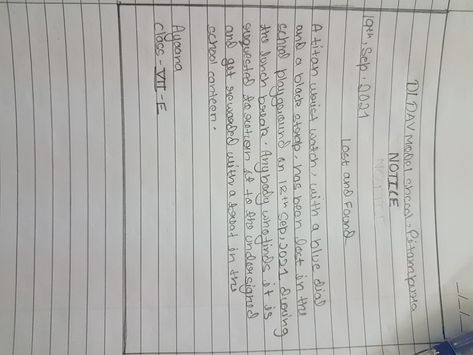 DL DAV Model School, Pitampura
NOTICE
19th, Sep, 2021
Lost and Found
A titan waist watch, with a blue dial
and a black strap, has been lost in the
school playground on 12th Sep, 2021 during
the lunch break. Anybody who finds it is
suggested to return it to the undersigned
and get rewarded with a treat in the
school canteen.
Ayaana
Class - VII - E